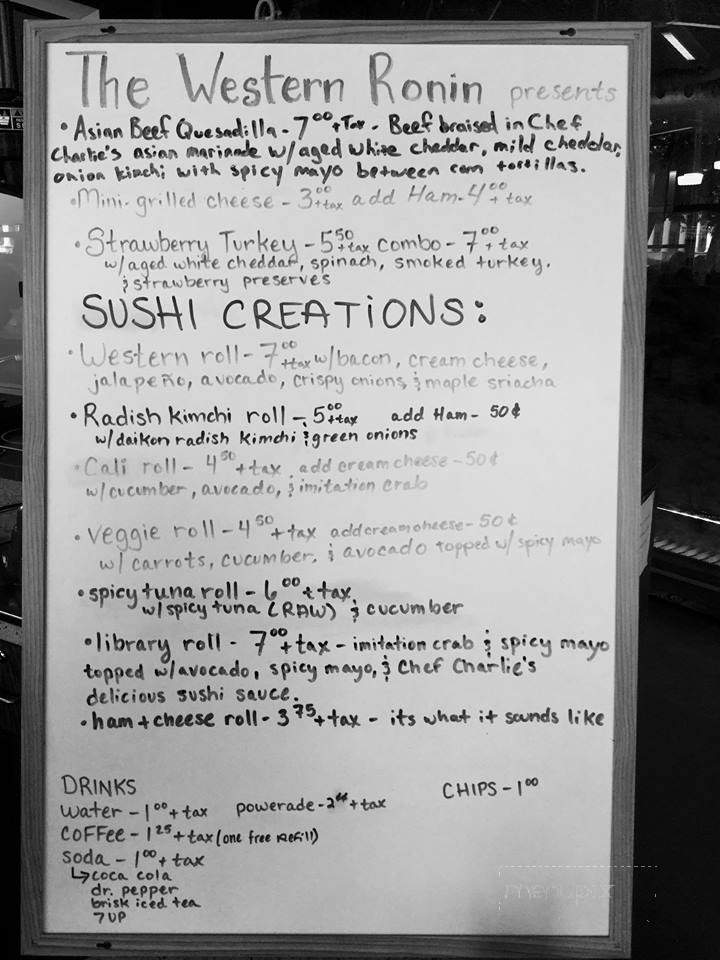 The Western Ronin presents
• Asian Beef Quesadilla - 7⁰⁰ + Tax - Beef braised in Chef
Charlie's asian marinade w/aged white cheddar, mild cheddar,
onion kimchi with spicy mayo between corn tortillas.
• Mini grilled cheese - 3⁰⁰ + tax add Ham - 4⁰⁰ + tax
• Strawberry Turkey - 5⁵⁰ + tax combo - 7⁰⁰ + tax
w/aged white cheddar, spinach, smoked turkey,
& strawberry preserves
SUSHI CREATIONS:
• Western roll - 7⁰⁰ + tax w/bacon, cream cheese,
jalapeño, avocado, crispy onions, & maple sriacha
• Radish Kimchi roll - 5⁰⁰ + tax add Ham - 50¢
w/daikon radish kimchi & green onions
• Cali roll - 4⁵⁰ + tax, add cream cheese - 50¢
w/cucumber, avocado, & imitation crab
• Veggie roll - 4⁵⁰ + tax add cream cheese - 50¢
w/ carrots, cucumber, & avocado topped w/ spicy mayo
• spicy tuna roll - 6⁰⁰ + tax
w/spicy tuna (RAW) & cucumber
• library roll - 7⁰⁰ + tax - imitation crab & spicy mayo
topped w/avocado, spicy mayo, & Chef Charlie's
delicious sushi sauce.
• ham + cheese roll - 3⁷⁵ + tax - its what it sounds like
DRINKS CHIPS - 1⁰⁰
water - 1⁰⁰ + tax powerade - 2 + tax
COFFee - 1²⁵ + tax (one free Refill)
soda - 1⁰⁰ + tax
↳ coca cola
dr. pepper
brisk iced tea
7UP